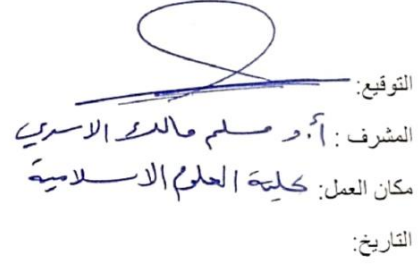 التوقيع:
المشرف : أ.د مسلم مالك الاسدي
مكان العمل: كلية العلوم الاسلامية
التاريخ: